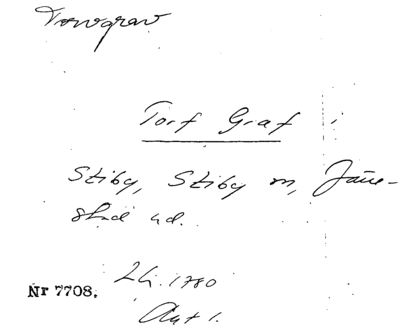 Torvgrav
Torf Graf
Stiby, Stiby m, Jäne-
stad hd.
Nr 7708. LG. 1780
Akt 1.